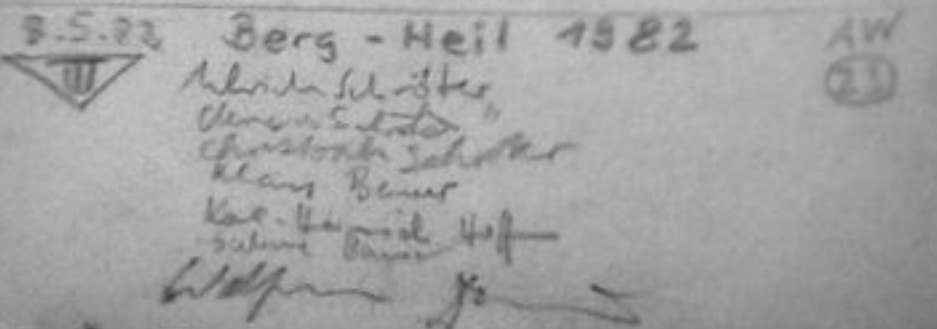 8.5.82 Berg - Heil 1982 AW
III 23
Ulrich Schröter
Schröter "
Christoph Schröter
Klaus Bauer
Karl-Heinrich Hoff
Sabine Bauer
Wolfram